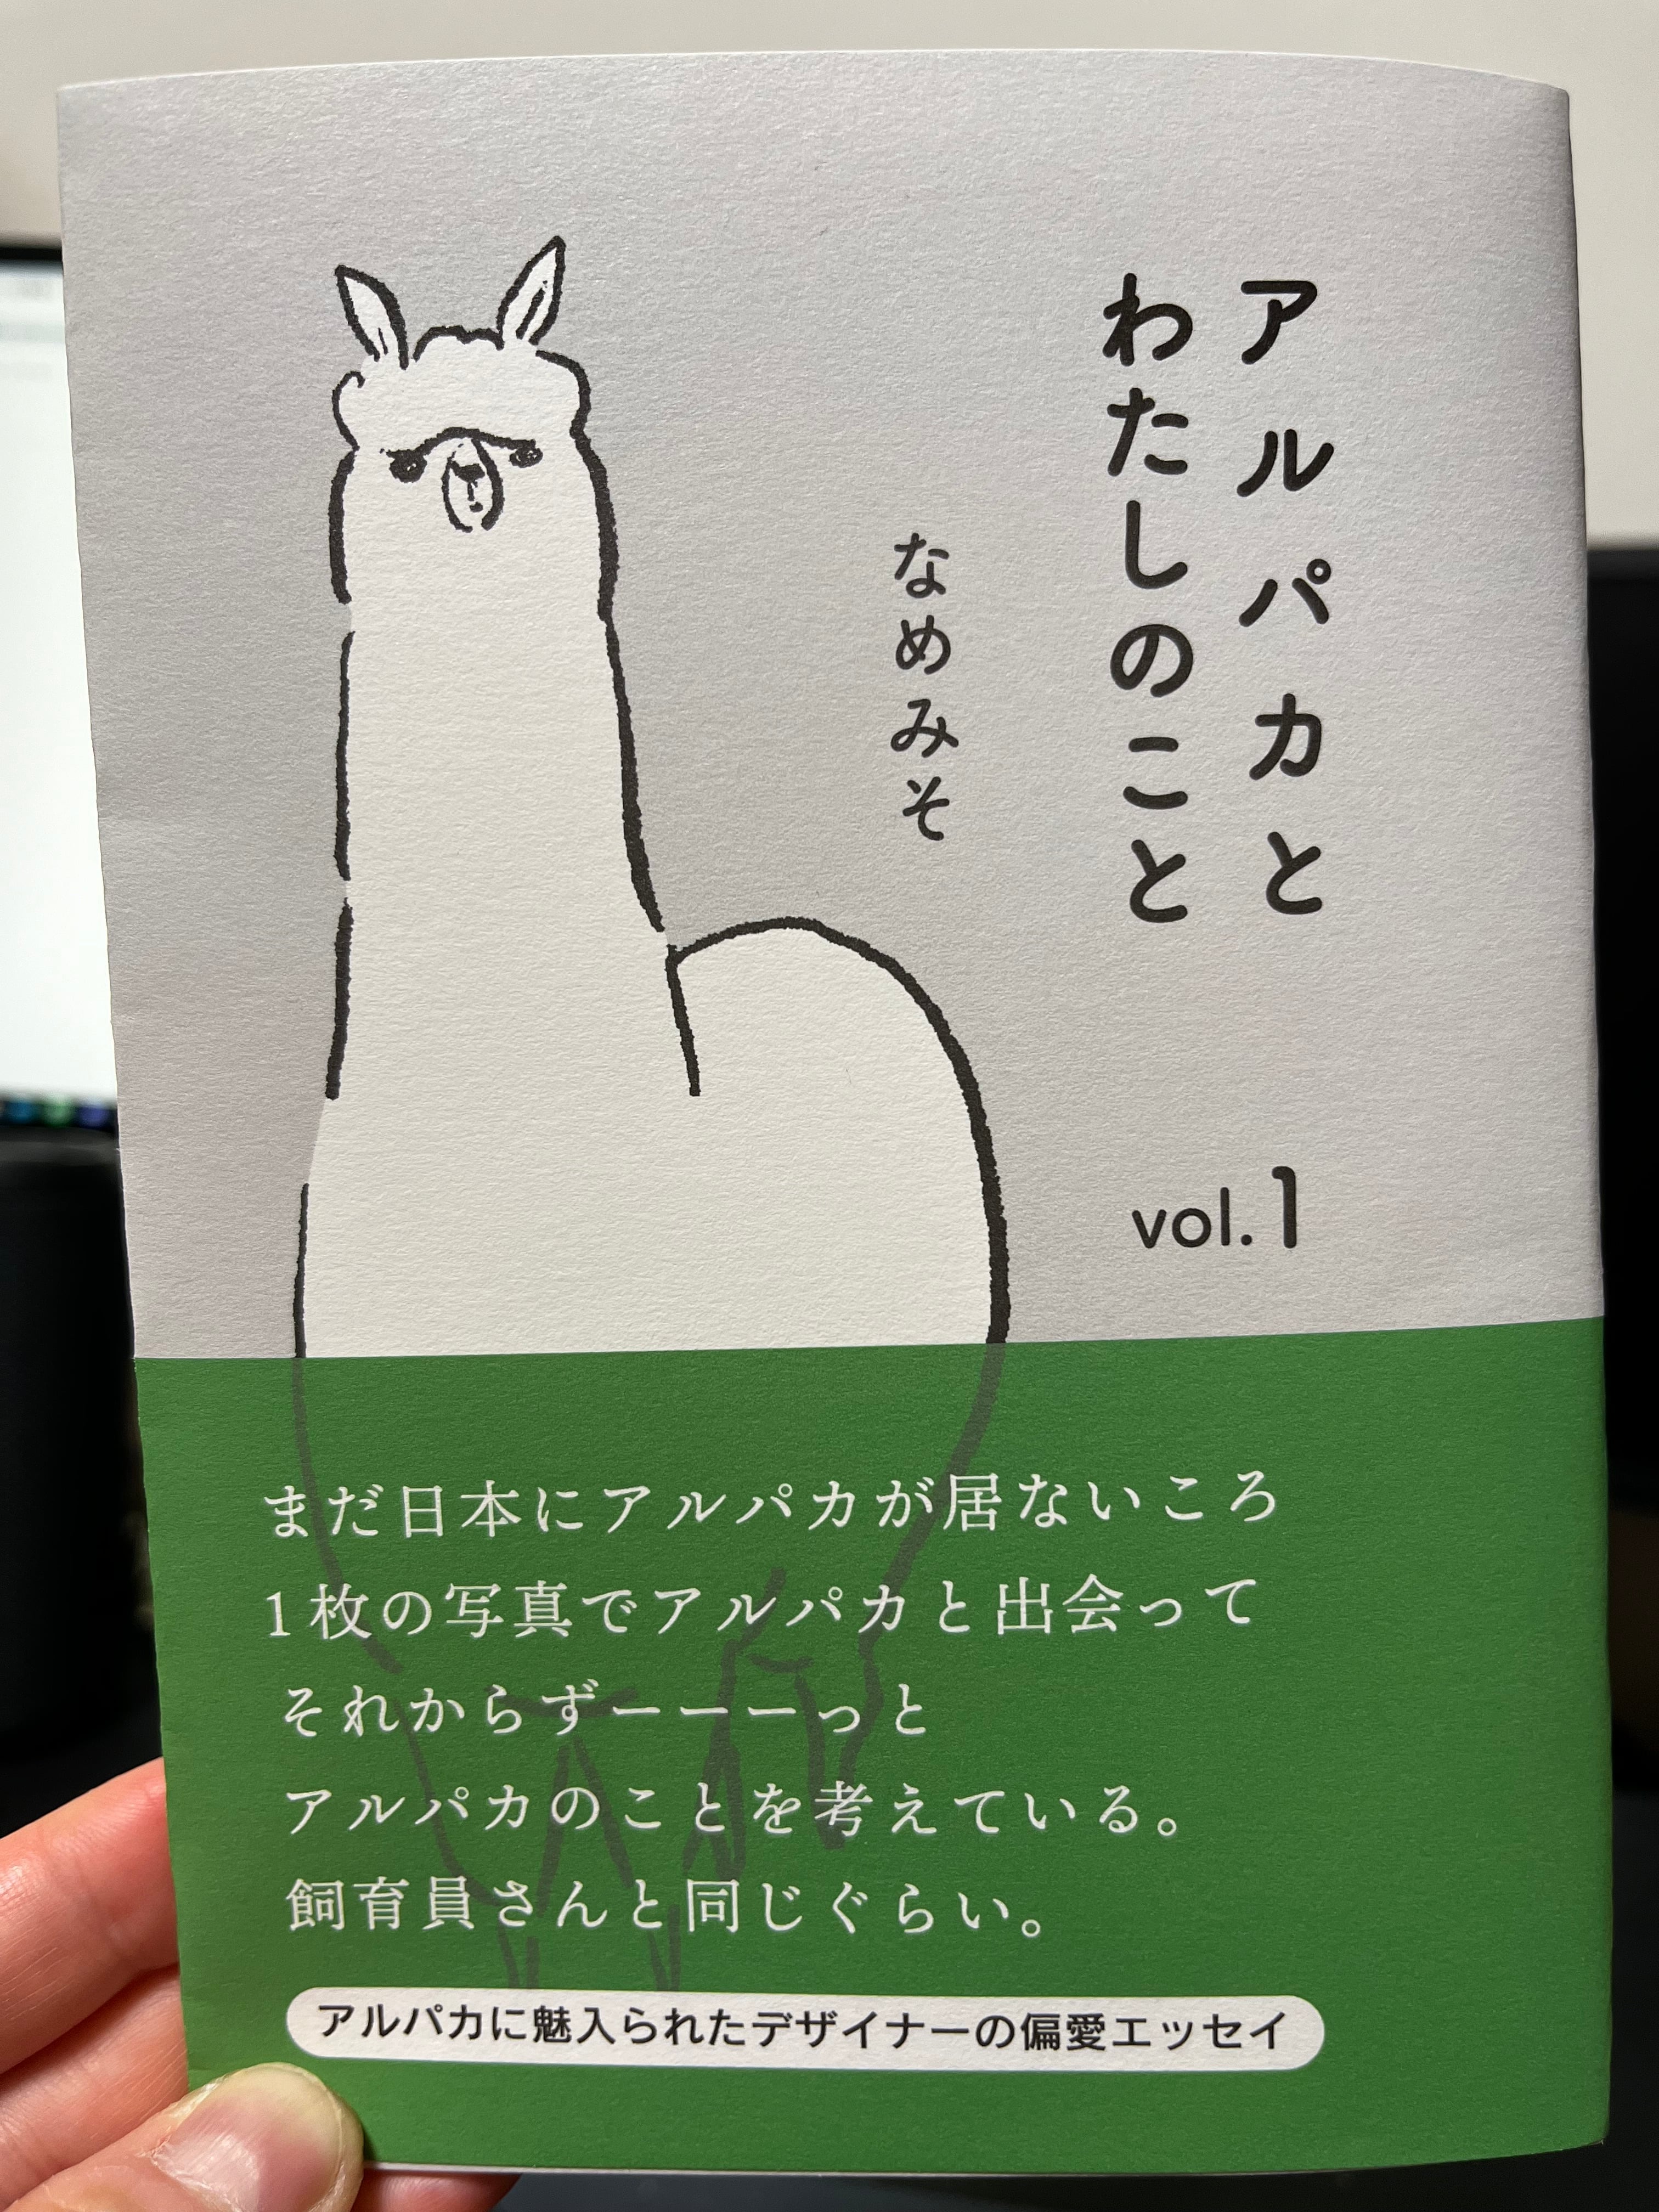 アルパカと
わたしのこと
なめみそ
vol.1
まだ日本にアルパカが居ないころ
1枚の写真でアルパカと出会って
それからずーーーっと
アルパカのことを考えている。
飼育員さんと同じぐらい。
アルパカに魅入られたデザイナーの偏愛エッセイ